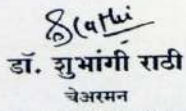 डॉ. शुभांगी राठी
चेअरमन